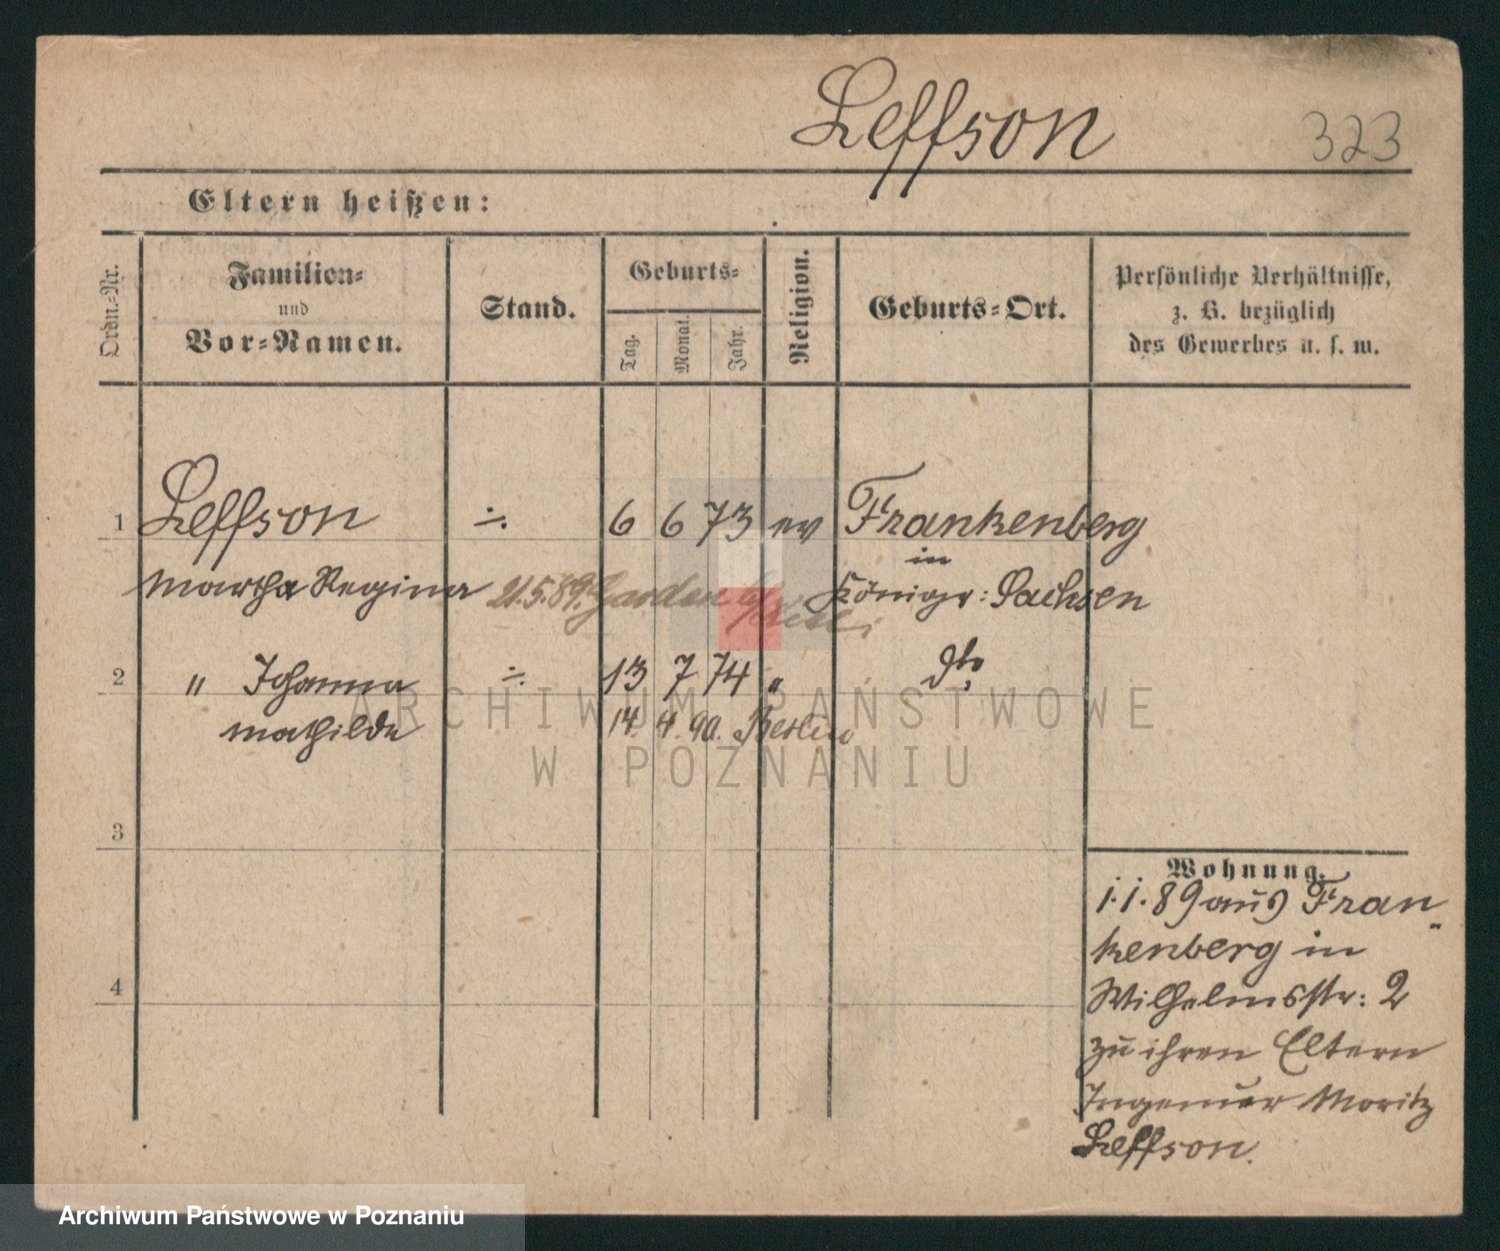 Leffson
323
Eltern heißen:
Ordn.-Nr.
Familien-
und
Vor-Namen.
Stand.
Geburts-
Tag.
Monat.
Jahr.
Religion.
Geburts-Ort.
Persönliche Verhältnisse,
z. B. bezüglich
des Gewerbes u. s. w.
1 Leffson ÷ 6 6 73 ev Frankenberg
in
Martha Regina 21.5.89. Königr: Sachsen
2 " Johanna ÷ 13 7 74 " dto
Mathilde 14. 4. 90. Berlin
3
4
Wohnung.
1.1.89 aus Fran-
kenberg in
Wilhelmsstr: 2
zu ihren Eltern
Ingenieur Moritz
Leffson.
ARCHIWUM PAŃSTWOWE
W POZNANIU
Archiwum Państwowe w Poznaniu